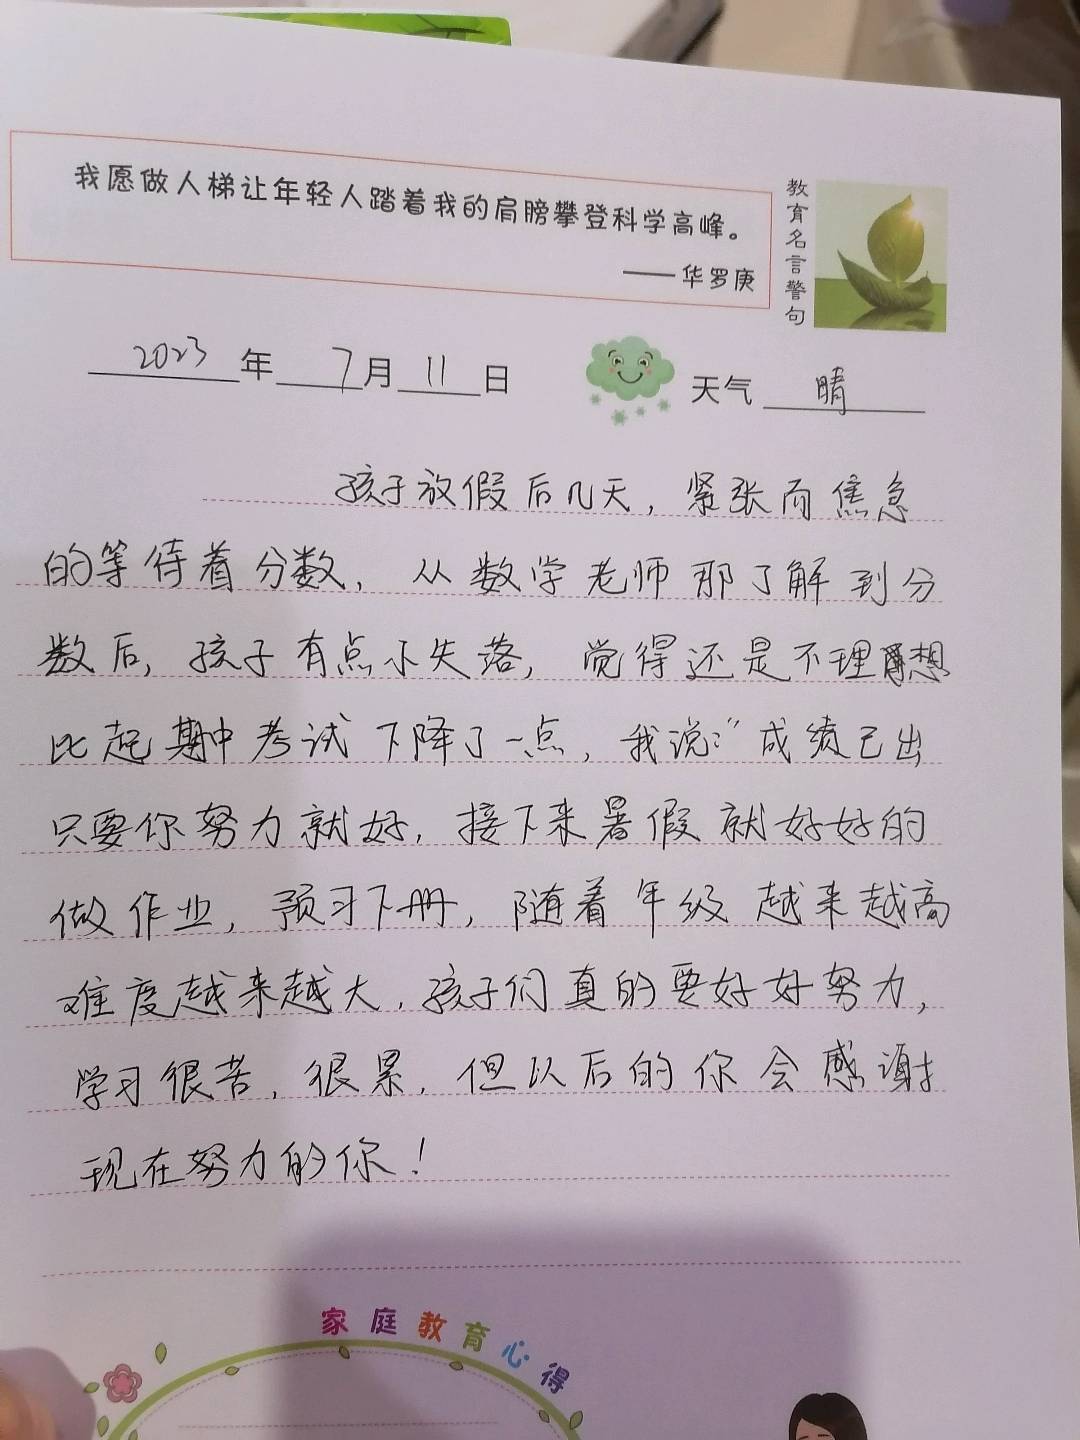 我愿做人梯让年轻人踏着我的肩膀攀登科学高峰。
——华罗庚
教育名言警句
2023年7月11日
天气 晴
孩子放假后几天，紧张而焦急
的等待着分数，从数学老师那了解到分
数后，孩子有点小失落，觉得还是不理想
比起期中考试下降了一点，我说："成绩已出
只要你努力就好，接下来暑假就好好的
做作业，预习下册，随着年级越来越高
难度越来越大，孩子们真的要好好努力，
学习很苦，很累，但以后的你会感谢
现在努力的你！
家庭教育心得